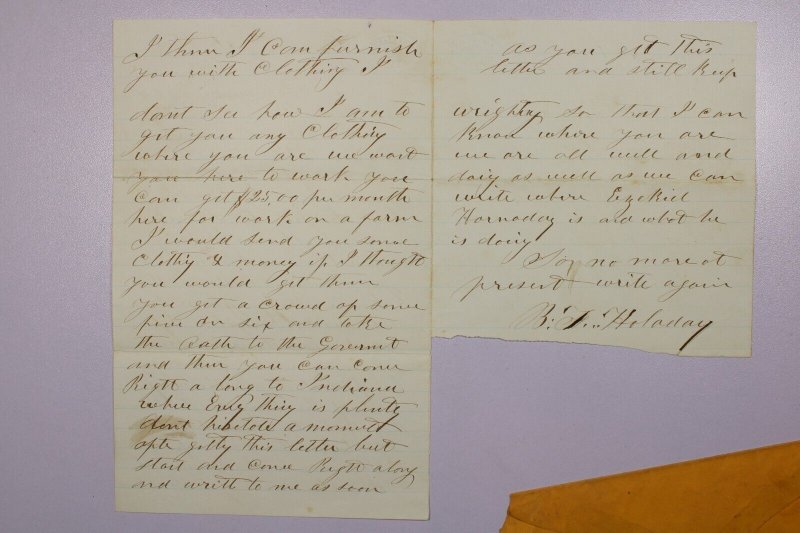 I then I Can furnish
you with Clothing I
dont see how I am to
get you any Clothing
where you are we want
you here to work you
Can get $25.00 per month
here for work on a farm
I would send you some
Clothig & money if I thought
you would get them
you get a crowd of some
five or six and take
the Oath to the Goverment
and then you can Come
Right a long to Indiana
where Evry thing is plenty
dont hisitate a moment
after gitty this letter but
start and Come Right along
and write to me as soon
as you get this
letter and still keep
wrighting so that I can
Know where you are
we are all well and
doig as well as we can
write where Ezekiel
Hornaday is and what he
is doing
So no more at
present write again
B. F. Holaday